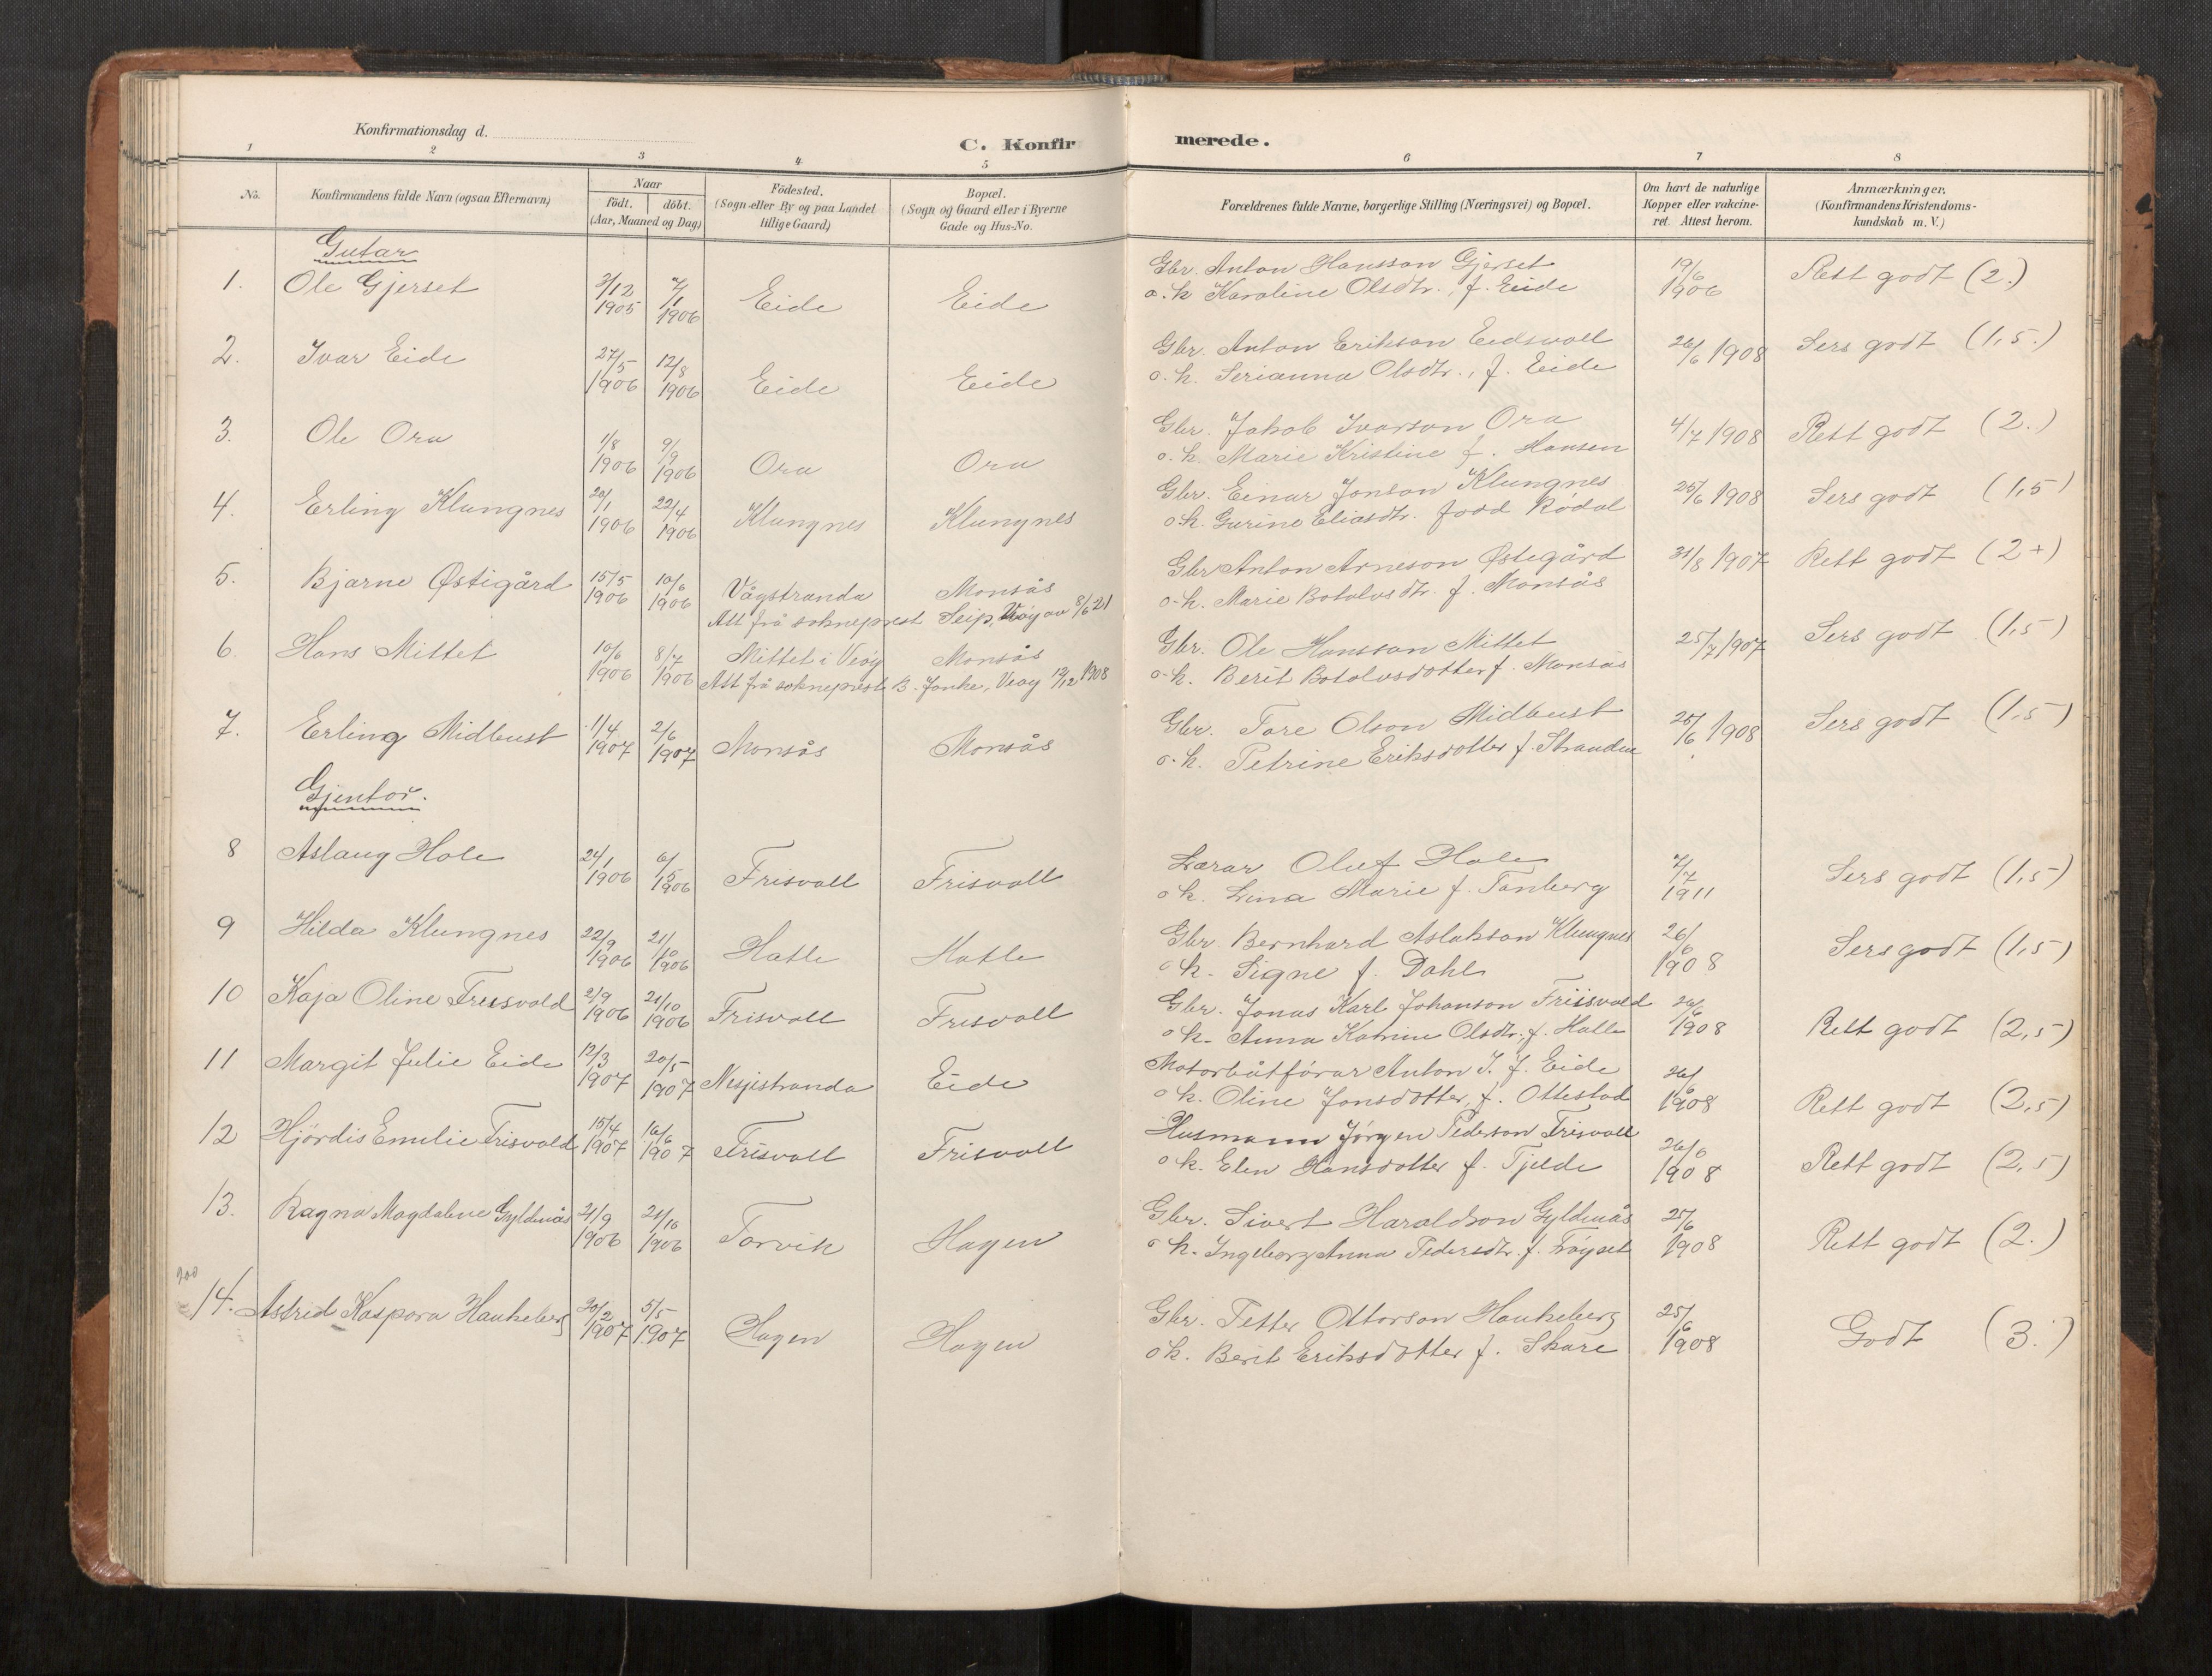 Konfirmationsdag d.
C. Konfirmerede.
1 2 3 4 5 6 7 8
No. Konfirmandens fulde Navn (ogsaa Efternavn) Naar født. døbt. (Aar, Maaned og Dag) Fødested. (Sogn eller By og paa Landet tillige Gaard) Bopæl. (Sogn og Gaard eller i Byerne Gade og Hus-No. Forældrenes fulde Navne, borgerlige Stilling (Næringsvei) og Bopæl. Om havt de naturlige Kopper eller vakcineret. Attest herom. Anmærkninger. (Konfirmandens Kristendomskundskab m. V.)
Gutar
1. Ole Gjerset 2/12 1905 7/1 1906 Eide Eide Gbr. Anton Hansson Gjerset 19/6 1906 Rett godt (2.)
o. k. Karoline Olsdtr., f. Eide
2. Ivar Eide 27/5 1906 12/8 1906 Eide Eide Gbr. Anton Erikson Eidsvoll 26/6 1908 Sers godt (1,5.)
o. k. Serianna Olsdtr., f. Eide
3. Ole Ora 1/8 1906 9/9 1906 Ora Ora Gbr. Jakob Ivarson Ora 4/7 1908 Rett godt (2.)
o. k. Marie Kristine f. Hansen
4. Erling Klungnes 20/1 1906 22/4 1906 Klungnes Klungnes Gbr. Einar Jonson Klungnes 25/6 1908 Sers godt (1,5)
o. k. Gurine Eliasdtr. fødd Rødal
5. Bjarne Østigård 15/5 1906 10/6 1906 Vågstranda Monsås Gbr Anton Arneson Østegård 31/8 1907 Rett godt (2+)
Att frå sokneprest Seip, Veøy av 8/6 21 o. k. Marie Botolvsdtr. f. Monsås
6. Hans Mittet 10/6 1906 8/7 1906 Mittet i Veøy Monsås Gbr. Ole Hansson Mittet 25/7 1907 Sers godt (1,5)
Att frå sokneprest B. Janke, Veøy 19/12 1908 o. k. Berit Botolvsdotter f. Monsås
7. Erling Midbust 11/4 1907 2/6 1907 Monsås Monsås Gbr. Tore Olson Midbust 25/6 1908 Sers godt (1,5)
o. k. Petrine Eriksdotter f. Strande
Gjentor.
8 Aslaug Hole 24/1 1906 6/5 1906 Frisvoll Frisvoll Lærar Oluf Hole 7/7 1911 Sers godt (1,5)
o k. Lina Marie f. Tanberg
9 Hilda Klungnes 22/9 1906 21/10 1906 Hatle Hatle Gbr. Bernhard Aslakson Klungnes 26/6 1908 Sers godt (1,5)
o k. Signe f. Dahl
10 Kaja Oline Friisvold 2/9 1906 21/10 1906 Frisvoll Frisvoll Gbr. Jonas Karl Johanson Friisvold 26/6 1908 Rett godt (2,5)
o k. Anna Katrine Olsdtr., f. Hatle
11 Margit Julie Eide 12/3 1907 20/5 1907 Nesjestranda Eide Motorbåtførar Anton J. f. Eide 26/6 1908 Rett godt (2,5)
o k. Oline Jonsdotter, f. Ottestad
12 Hjördis Emelie Frisvold 15/4 1907 16/6 1907 Frisvoll Frisvoll Husmann Jörgen Pederson Frisvoll 26/6 1908 Rett godt (2,5)
o k. Elen Hansdotter f. Tjelde
13. Ragna Magdalene Gyldenås 21/9 1906 21/10 1906 Torvik Hagen Gbr. Sivert Haraldson Gyldenås 25/6 1908 Rett godt (2.)
o k. Ingeborg Anna Pedersdtr. f. Frøyset
14. Astrid Kaspora Haukeberg 20/2 1907 5/5 1907 Hagen Hagen Gbr. Petter Ottorson Haukeberg 25/6 1908 Godt (3.)
o k. Berit Eriksdotter f. Skare